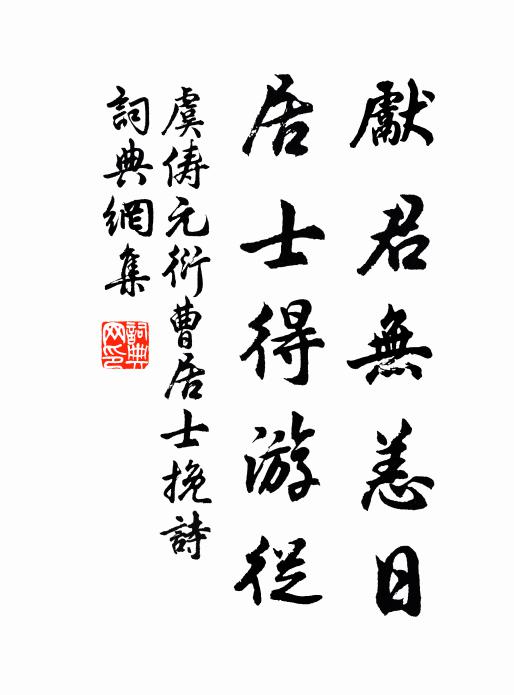 獻君無恙日
居士得游從
虞儔元衍曹居士挽詩
詞典網集
詞典網印